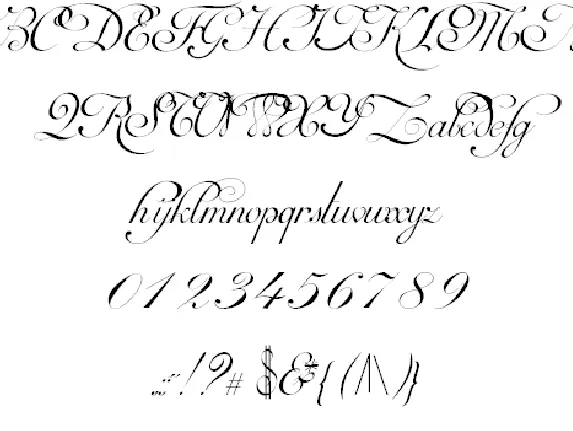 BCDEFGHIJKLM
QRSTUVWXYZabcdefg
hijklmnopqrstuvwxyz
0123456789
!?#$&{(/|\)}